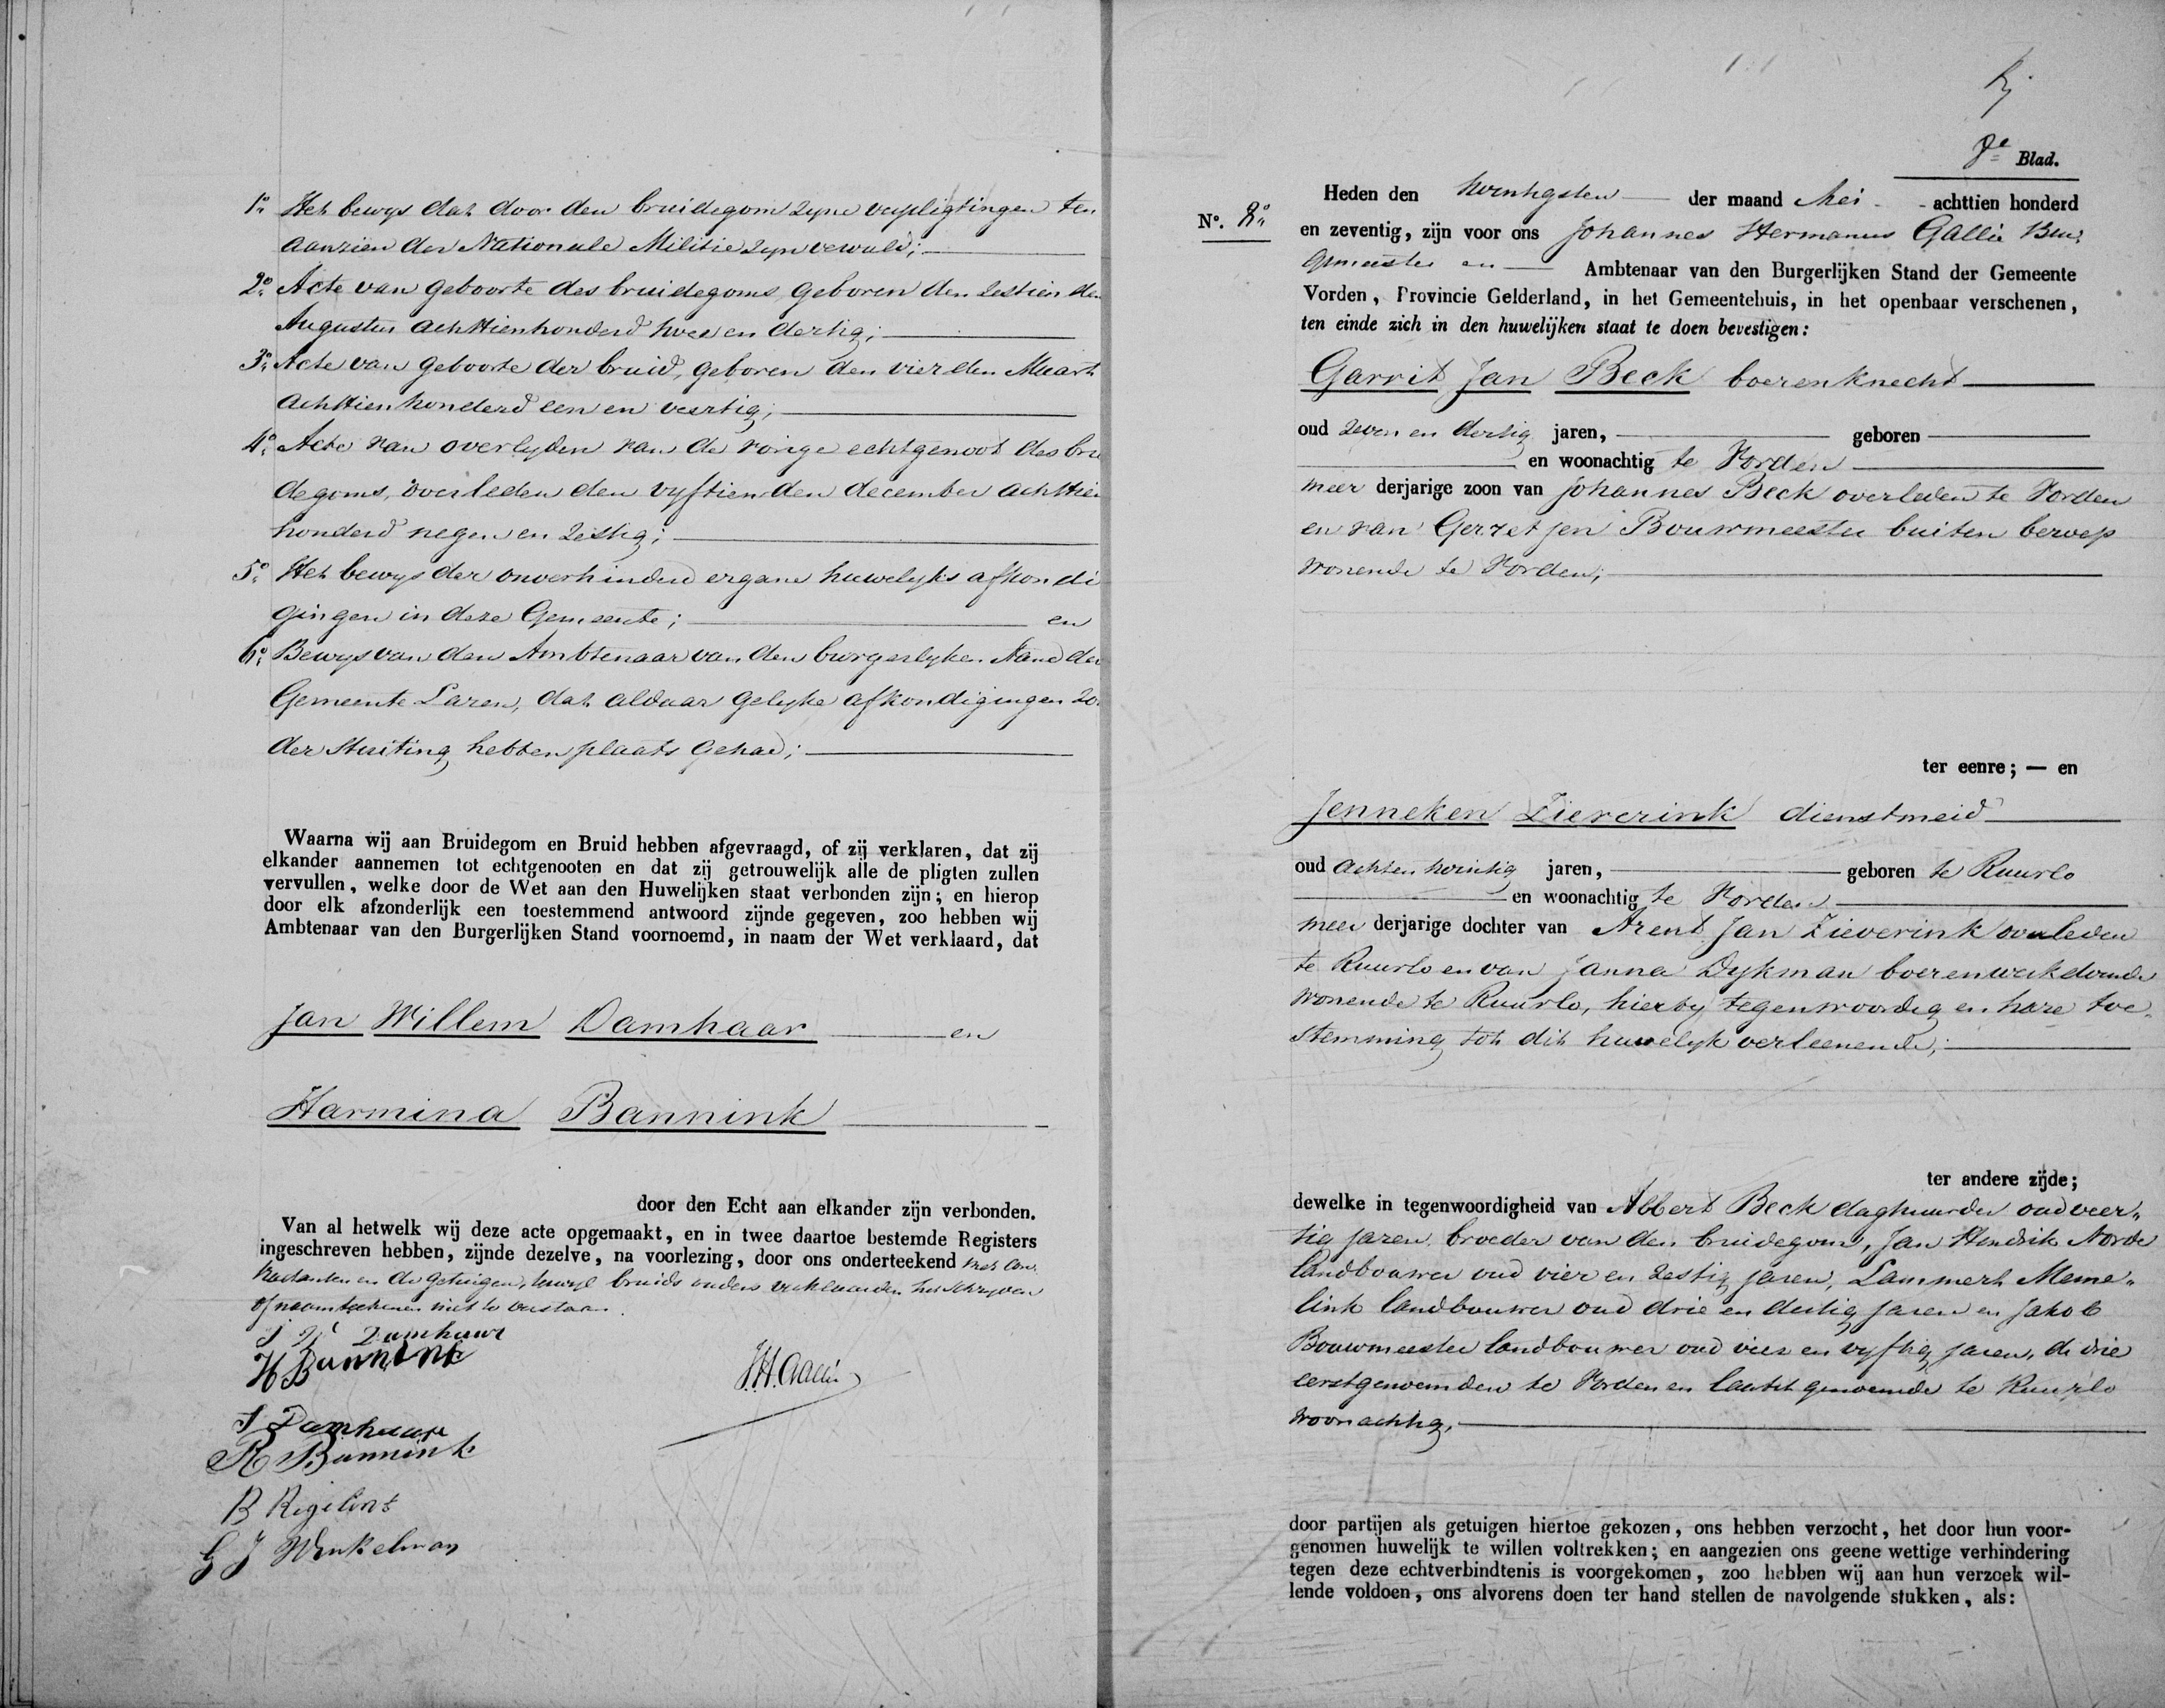 1º. Het bewys dat door den bruidegom zyne verpligtingen ten
aanzien der Nationale Militie zyn vervuld;
2º. Acte van geboorte des bruidegoms, geboren den zestienden
Augustus achttienhonderd twee en dertig;
3º. Acte van geboorte der bruid, geboren den vierden Maart
achttienhonderd een en veertig;
4º. Acte van overlyden van de vorige echtgenoot des brui
degoms, overleden den vyftienden december achttien
honderd negen en zestig;
5º. Het bewys der onverhinderd ergane huwelyks afkondi
gingen in deze Gemeente; en
6º. Bewys van den Ambtenaar van den burgerlyken Stand der
Gemeente Laren, dat aldaar gelyke afkondigingen zon
der stuiting hebben plaats gehad;
Waarna wij aan Bruidegom en Bruid hebben afgevraagd, of zij verklaren, dat zij
elkander aannemen tot echtgenooten en dat zij getrouwelijk alle de pligten zullen
vervullen, welke door de Wet aan den Huwelijken staat verbonden zijn; en hierop
door elk afzonderlijk een toestemmend antwoord zijnde gegeven, zoo hebben wij
Ambtenaar van den Burgerlijken Stand voornoemd, in naam der Wet verklaard, dat
Jan Willem Damhaar en
Harmina Bannink
door den Echt aan elkander zijn verbonden.
Van al hetwelk wij deze acte opgemaakt, en in twee daartoe bestemde Registers
ingeschreven hebben, zijnde dezelve, na voorlezing, door ons onderteekend met con-
tractanten en de getuigen, terwyl bruids ouders verklaarden het schryven
of naamteekenen niet te verstaan.
J W Damhaar
H Bannink
J.H. Gallée
J Damhaar
R Bannink
B Regelink
G J Winkelman
8e Blad.
Nº. 8º.
Heden den twintigsten der maand Mei achttien honderd
en zeventig, zijn voor ons Johannes Hermanus Gallée Bur-
gemeester en Ambtenaar van den Burgerlijken Stand der Gemeente
Vorden, Provincie Gelderland, in het Gemeentehuis, in het openbaar verschenen,
ten einde zich in den huwelijken staat te doen bevestigen:
Garrit Jan Beck boerenknecht
oud zeven en dertig jaren, geboren
en woonachtig te Vorden
meer derjarige zoon van Johannes Beck overleden te Vorden
en van Gerretjen Bouwmeester buiten beroep
wonende te Vorden;
ter eenre; — en
Jenneken Zieverink dienstmeid
oud acht en twintig jaren, geboren te Ruurlo
en woonachtig te Vorden
meer derjarige dochter van Arend Jan Zieverink overleden
te Ruurlo en van Janna Dykman boerenwerkdoende
wonende te Ruurlo, hierby tegenwoordig en hare toe-
stemming tot dit huwelyk verleenende;
ter andere zijde;
dewelke in tegenwoordigheid van Albert Beck daghuurder oud veer-
tig jaren broeder van den bruidegom, Jan Hendrik Norde
landbouwer oud vier en zestig jaren, Lammert Meme-
link landbouwer oud drie en dertig jaren en Jakob
Bouwmeester landbouwer oud vier en vyftig jaren, de drie
eerstgenoemden te Vorden en laatstgenoemde te Ruurlo
woonachtig.
door partijen als getuigen hiertoe gekozen, ons hebben verzocht, het door hun voor-
genomen huwelijk te willen voltrekken; en aangezien ons geene wettige verhindering
tegen deze echtverbindtenis is voorgekomen, zoo hebben wij aan hun verzoek wil-
lende voldoen, ons alvorens doen ter hand stellen de navolgende stukken, als: